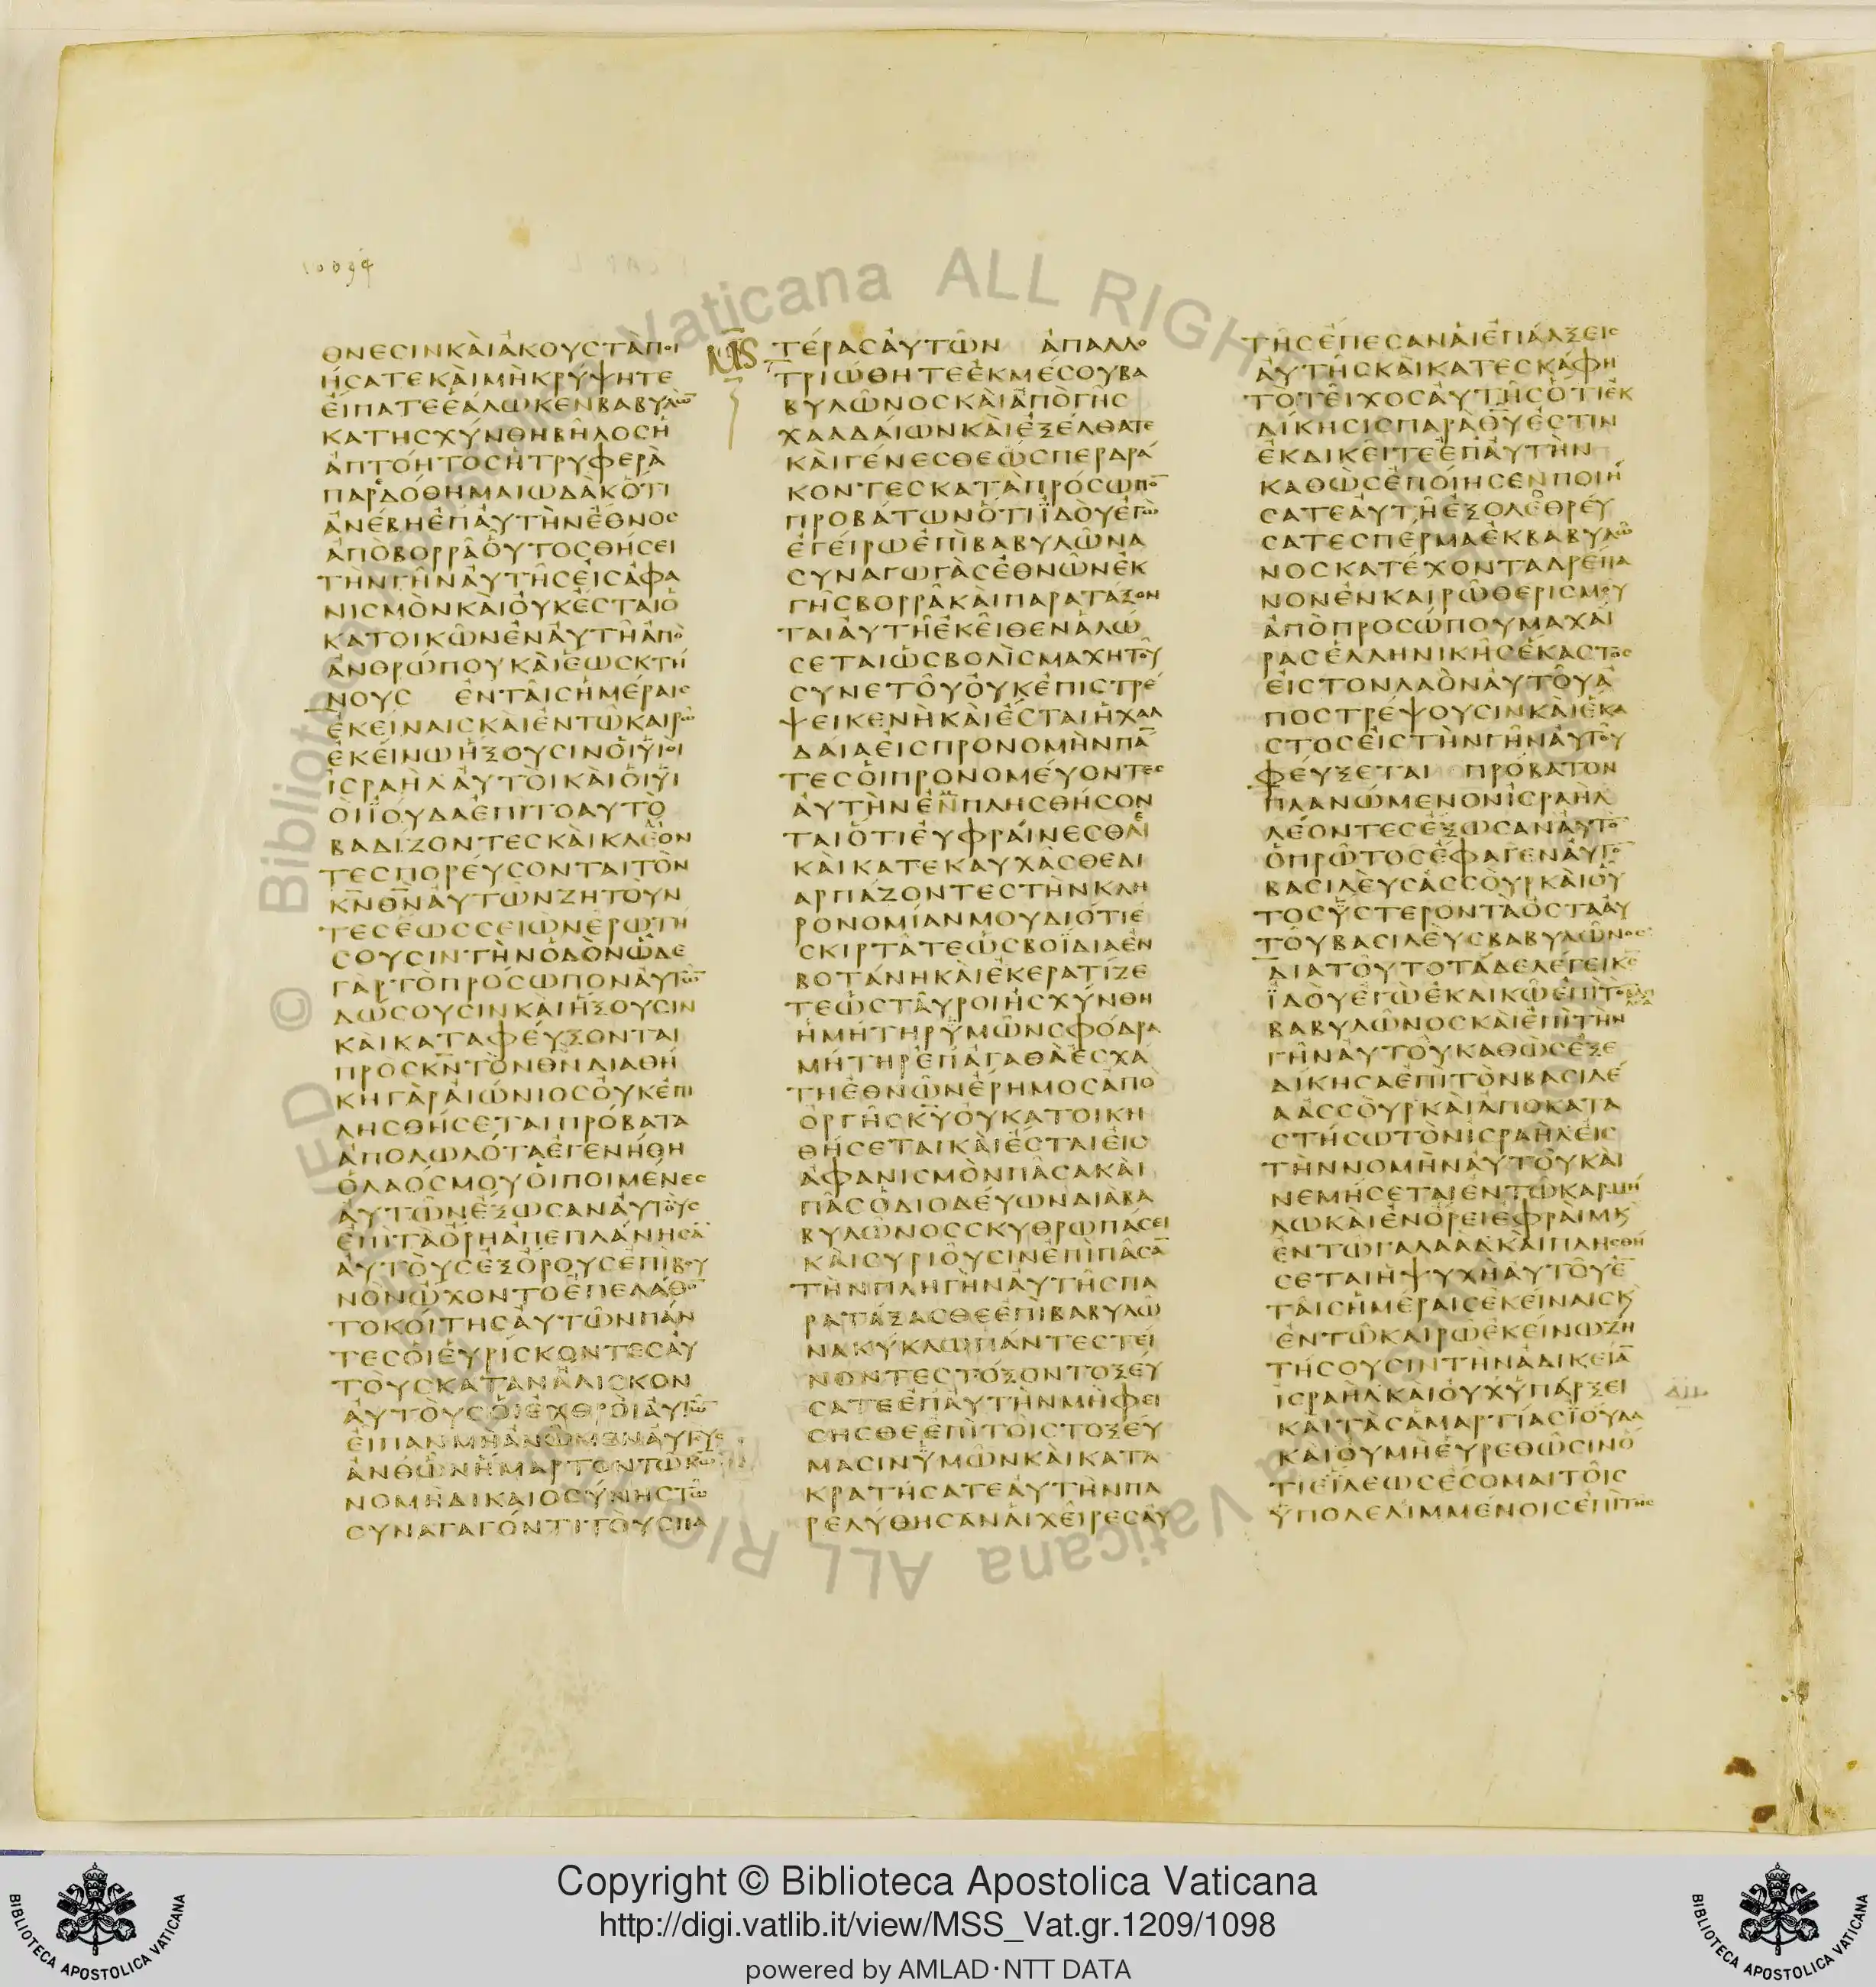 1094
ΘΝΕϹΙΝΚΑΙΑΚΟΥϹΤΑΠΟΙ
ΗϹΑΤΕΚΑΙΜΗΚΡΥΨΗΤΕ
ΕΙΠΑΤΕΕΑΛΩΚΕΝΒΑΒΥΛΩ̅
ΚΑΤΗϹΧΥΝΘΗΒΗΛΟϹΗ
ΑΠΤΟΗΤΟϹΗΤΡΥΦΕΡΑ
ΠΑΡΑΔΟΘΗΜΑΙΩΔΑΚΟΤΙ
ΑΝΕΒΗΕΠΑΥΤΗΝΕΘΝΟϹ
ΑΠΟΒΟΡΡΑΟΥΤΟϹΘΗϹΕΙ
ΤΗΝΓΗΝΑΥΤΗϹΕΙϹΑΦΑ
ΝΙϹΜΟΝΚΑΙΟΥΚΕϹΤΑΙΟ
ΚΑΤΟΙΚΩΝΕΝΑΥΤΗΑΠΟ
ΑΝΘΡΩΠΟΥΚΑΙΕΩϹΚΤΗ
ΝΟΥϹ ΕΝΤΑΙϹΗΜΕΡΑΙϹ
ΕΚΕΙΝΑΙϹΚΑΙΕΝΤΩΚΑΙΡΩ
ΕΚΕΙΝΩΗΞΟΥϹΙΝΟΙΥΙΟΙ
ΙϹΡΑΗΛΑΥΤΟΙΚΑΙΟΙΥΙ
ΟΙΙΟΥΔΑΕΠΙΤΟΑΥΤΟ
ΒΑΔΙΖΟΝΤΕϹΚΑΙΚΛΕΟΝ
ΤΕϹΠΟΡΕΥϹΟΝΤΑΙΤΟΝ
Κ̅Ν̅Θ̅Ν̅ΑΥΤΩΝΖΗΤΟΥΝ
ΤΕϹΕΩϹϹΕΙΩΝΕΡΩΤΗ
ϹΟΥϹΙΝΤΗΝΟΔΟΝΩΔΕ
ΓΑΡΤΟΠΡΟϹΩΠΟΝΑΥΤΩ̅
ΔΩϹΟΥϹΙΝΚΑΙΗΞΟΥϹΙΝ
ΚΑΙΚΑΤΑΦΕΥΞΟΝΤΑΙ
ΠΡΟϹΚ̅Ν̅ΤΟΝΘ̅Ν̅ΔΙΑΘΗ
ΚΗΓΑΡΑΙΩΝΙΟϹΟΥΚΕΠΙ
ΛΗϹΘΗϹΕΤΑΙΠΡΟΒΑΤΑ
ΑΠΟΛΩΛΟΤΑΕΓΕΝΗΘΗ
ΟΛΑΟϹΜΟΥΟΙΠΟΙΜΕΝΕϹ
ΑΥΤΩΝΕΞΩϹΑΝΑΥΤΟΥϹ
ΕΠΙΤΑΟΡΗΑΠΕΠΛΑΝΗϹΑ̅
ΑΥΤΟΥϹΕΞΟΡΟΥϹΕΠΙΒΟΥ
ΝΟΝΩΧΟΝΤΟΕΠΕΛΑΘΟ̅
ΤΟΚΟΙΤΗϹΑΥΤΩΝΠΑΝ
ΤΕϹΟΙΕΥΡΙϹΚΟΝΤΕϹΑΥ
ΤΟΥϹΚΑΤΑΝΑΛΙϹΚΟΝ
ΑΥΤΟΥϹΟΙΕΧΘΡΟΙΑΥΤΩ̅
ΕΙΠΑΝΜΗΑΝΩΜΕΝΑΥΤΟΥϹ
ΑΝΘΩΝΗΜΑΡΤΟΝΤΩΚ̅Ω̅
ΝΟΜΗΔΙΚΑΙΟϹΥΝΗϹΤΩ
ϹΥΝΑΓΑΓΟΝΤΙΤΟΥϹΠΑ
ΤΕΡΑϹΑΥΤΩΝ ΑΠΑΛΛΟ
ΤΡΙΩΘΗΤΕΕΚΜΕϹΟΥΒΑ
ΒΥΛΩΝΟϹΚΑΙΑΠΟΓΗϹ
ΧΑΛΔΑΙΩΝΚΑΙΕΞΕΛΘΑΤΕ
ΚΑΙΓΕΝΕϹΘΕΩϹΠΕΡΔΡΑ
ΚΟΝΤΕϹΚΑΤΑΠΡΟϹΩΠΟ̅
ΠΡΟΒΑΤΩΝΟΤΙΙΔΟΥΕΓΩ
ΕΓΕΙΡΩΕΠΙΒΑΒΥΛΩΝΑ
ϹΥΝΑΓΩΓΑϹΕΘΝΩΝΕΚ
ΓΗϹΒΟΡΡΑΚΑΙΠΑΡΑΤΑΞΟΝ
ΤΑΙΑΥΤΗΕΚΕΙΘΕΝΑΛΩ
ϹΕΤΑΙΩϹΒΟΛΙϹΜΑΧΗΤΟΥ
ϹΥΝΕΤΟΥΟΥΚΕΠΙϹΤΡΕ
ΨΕΙΚΕΝΗΚΑΙΕϹΤΑΙΗΧΑΛ
ΔΑΙΑΕΙϹΠΡΟΝΟΜΗΝΠΑ̅
ΤΕϹΟΙΠΡΟΝΟΜΕΥΟΝΤΕϹ
ΑΥΤΗΝΕΝΠΛΗϹΘΗϹΟΝ
ΤΑΙΟΤΙΕΥΦΡΑΙΝΕϹΘΑΙ
ΚΑΙΚΑΤΕΚΑΥΧΑϹΘΕΔΙ
ΑΡΠΑΖΟΝΤΕϹΤΗΝΚΛΗ
ΡΟΝΟΜΙΑΝΜΟΥΔΙΟΤΙΕ
ϹΚΙΡΤΑΤΕΩϹΒΟΙΔΙΑΕΝ
ΒΟΤΑΝΗΚΑΙΕΚΕΡΑΤΙΖΕ
ΤΕΩϹΤΑΥΡΟΙΗϹΧΥΝΘΗ
ΗΜΗΤΗΡΥΜΩΝϹΦΟΔΡΑ
ΜΗΤΗΡΕΠΑΓΑΘΑΕϹΧΑ
ΤΗΕΘΝΩΝΕΡΗΜΟϹΑΠΟ
ΟΡΓΗϹΚ̅Υ̅ΟΥΚΑΤΟΙΚΗ
ΘΗϹΕΤΑΙΚΑΙΕϹΤΑΙΕΙϹ
ΑΦΑΝΙϹΜΟΝΠΑϹΑΚΑΙ
ΠΑϹΟΔΙΟΔΕΥΩΝΔΙΑΒΑ
ΒΥΛΩΝΟϹϹΚΥΘΡΩΠΑϹΕΙ
ΚΑΙϹΥΡΙΟΥϹΙΝΕΠΙΠΑϹΑ̅
ΤΗΝΠΛΗΓΗΝΑΥΤΗϹΠΑ
ΡΑΤΑΞΑϹΘΕΕΠΙΒΑΒΥΛΩ
ΝΑΚΥΚΛΩΠΑΝΤΕϹΤΕΙ
ΝΟΝΤΕϹΤΟΞΟΝΤΟΞΕΥ
ϹΑΤΕΕΠΑΥΤΗΝΜΗΦΕΙ
ϹΗϹΘΕΕΠΙΤΟΙϹΤΟΞΕΥ
ΜΑϹΙΝΥΜΩΝΚΑΙΚΑΤΑ
ΚΡΑΤΗϹΑΤΕΑΥΤΗΝΠΑ
ΡΕΛΥΘΗϹΑΝΑΙΧΕΙΡΕϹΑΥ
ΤΗϹΕΠΕϹΑΝΑΙΕΠΑΛΞΕΙϹ
ΑΥΤΗϹΚΑΙΚΑΤΕϹΚΑΦΗ
ΤΟΤΕΙΧΟϹΑΥΤΗϹΟΤΙΕΚ
ΔΙΚΗϹΙϹΠΑΡΑΘ̅Υ̅ΕϹΤΙΝ
ΕΚΔΙΚΕΙΤΕΕΠΑΥΤΗΝ
ΚΑΘΩϹΕΠΟΙΗϹΕΝΠΟΙΗ
ϹΑΤΕΑΥΤΗΕΞΟΛΕΘΡΕΥ
ϹΑΤΕϹΠΕΡΜΑΕΚΒΑΒΥΛΩ
ΝΟϹΚΑΤΕΧΟΝΤΑΔΡΕΠΑ
ΝΟΝΕΝΚΑΙΡΩΘΕΡΙϹΜΟΥ
ΑΠΟΠΡΟϹΩΠΟΥΜΑΧΑΙ
ΡΑϹΕΛΛΗΝΙΚΗϹΕΚΑϹΤΟϹ
ΕΙϹΤΟΝΛΑΟΝΑΥΤΟΥΑ
ΠΟϹΤΡΕΨΟΥϹΙΝΚΑΙΕΚΑ
ϹΤΟϹΕΙϹΤΗΝΓΗΝΑΥΤΟΥ
ΦΕΥΞΕΤΑΙ ΠΡΟΒΑΤΟΝ
ΠΛΑΝΩΜΕΝΟΝΙϹΡΑΗΛ
ΛΕΟΝΤΕϹΕΞΩϹΑΝΑΥΤΟ̅
ΟΠΡΩΤΟϹΕΦΑΓΕΝΑΥΤΟ̅
ΒΑϹΙΛΕΥϹΑϹϹΟΥΡΚΑΙΟΥ
ΤΟϹΥϹΤΕΡΟΝΤΑΟϹΤΑΑΥ
ΤΟΥΒΑϹΙΛΕΥϹΒΑΒΥΛΩΝΟϹ
ΔΙΑΤΟΥΤΟΤΑΔΕΛΕΓΕΙΚ̅Ϲ̅
ΙΔΟΥΕΓΩΕΚΔΙΚΩΕΠΙΤΟ
ΒΑΒΥΛΩΝΟϹΚΑΙΕΠΙΤΗΝ
ΓΗΝΑΥΤΟΥΚΑΘΩϹΕΞΕ
ΔΙΚΗϹΑΕΠΙΤΟΝΒΑϹΙΛΕ
ΑΑϹϹΟΥΡΚΑΙΑΠΟΚΑΤΑ
ϹΤΗϹΩΤΟΝΙϹΡΑΗΛΕΙϹ
ΤΗΝΝΟΜΗΝΑΥΤΟΥΚΑΙ
ΝΕΜΗϹΕΤΑΙΕΝΤΩΚΑΡΜΗ
ΛΩΚΑΙΕΝΟΡΕΙΕΦΡΑΙΜΚ
ΕΝΤΩΓΑΛΑΑΔΚΑΙΠΛΗϹΘΗ
ϹΕΤΑΙΗΨΥΧΗΑΥΤΟΥΕ̅
ΤΑΙϹΗΜΕΡΑΙϹΕΚΕΙΝΑΙϹΚ
ΕΝΤΩΚΑΙΡΩΕΚΕΙΝΩΖΗ
ΤΗϹΟΥϹΙΝΤΗΝΑΔΙΚΕΙΑ̅
ΙϹΡΑΗΛΚΑΙΟΥΧΥΠΑΡΞΕΙ
ΚΑΙΤΑϹΑΜΑΡΤΙΑϹΙΟΥΔΑ
ΚΑΙΟΥΜΗΕΥΡΕΘΩϹΙΝΟ
ΤΙΕΙΛΕΩϹΕϹΟΜΑΙΤΟΙϹ
ΥΠΟΛΕΛΙΜΜΕΝΟΙϹΕΠΙΤΗϹ
Copyright © Biblioteca Apostolica Vaticana
http://digi.vatlib.it/view/MSS_Vat.gr.1209/1098
powered by AMLAD·NTT DATA
BIBLIOTECA APOSTOLICA VATICANA
BIBLIOTECA APOSTOLICA VATICANA